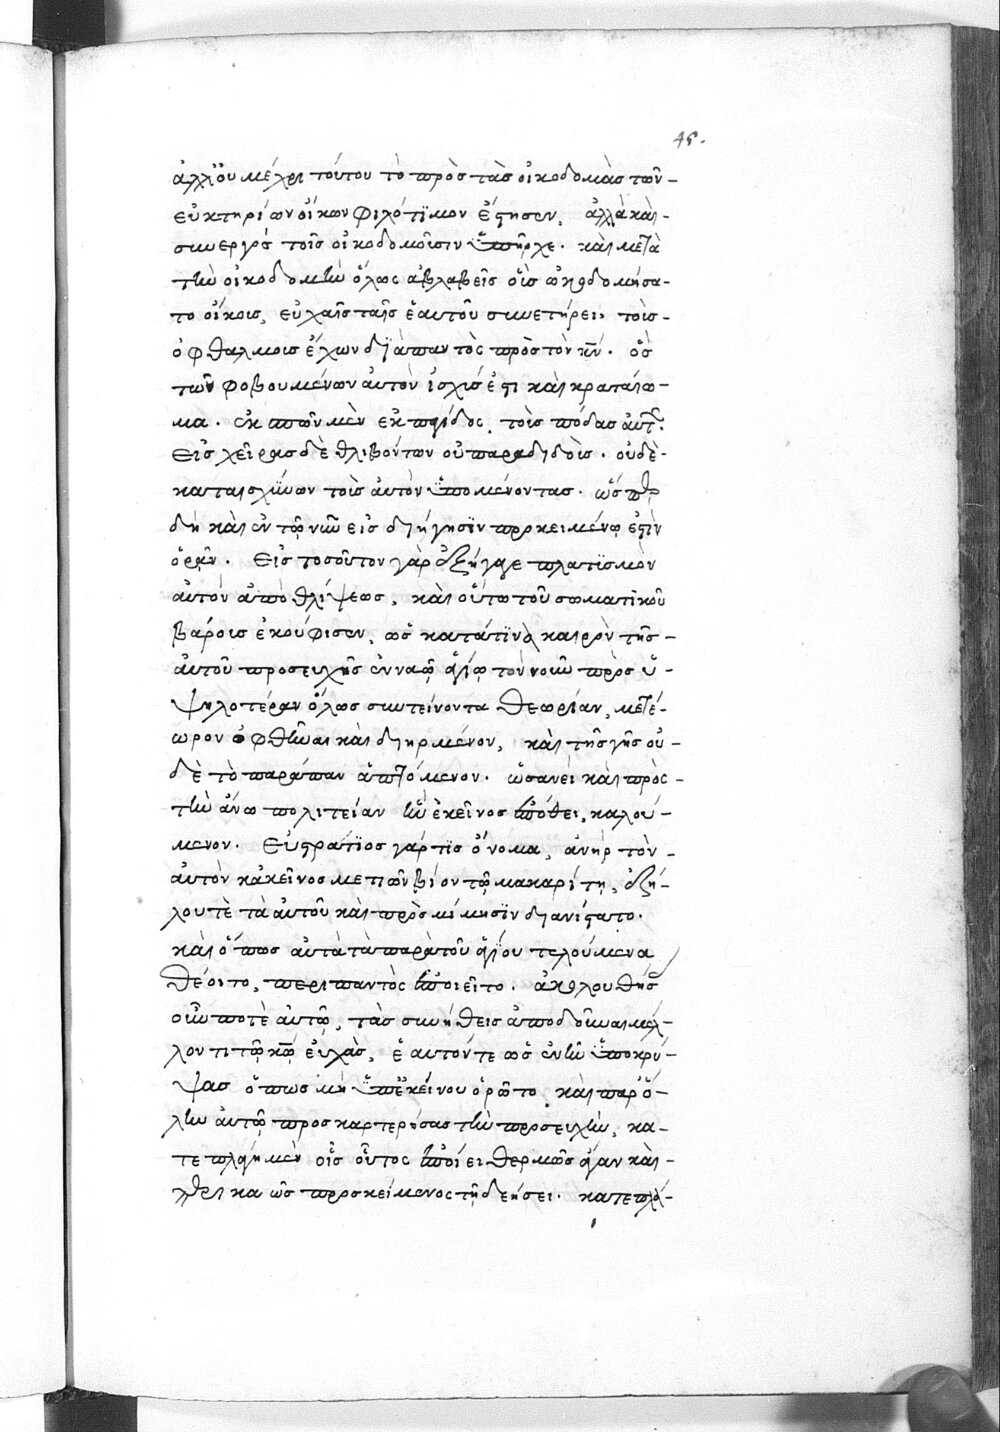 45.
ἀλλ' οὐ μέχρι τούτου τὸ πρὸς τὰς οἰκοδομὰς τῶν-
εὐκτηρίων οἴκων φιλότϊμον ἔστησεν, ἀλλὰ καὶ-
συνεργὸς τοῖς οἰκοδομοῖσιν ὑπῆρχε. καὶ μετὰ
τὴν οἰκοδομὴν ὅλως ἀβλαβεῖς οἷς ᾠκοδομήσα-
το οἴκοις, εὐχαῖς ταῖς ἑαυτοῦ συνετήρει, τοὺς-
ὀφθαλμοὺς ἔχων δϊάπαντὸς πρὸς τὸν κν̅. ὃς
τῶν φοβουμένων αὐτὸν ἰσχύς ἐστι καὶ κραταίω-
μα. ἐκσπῶν μὲν ἐκ παγίδος, τοὺς πόδας αὐτ.
εἰς χεῖρας δὲ θλιβόντων οὐ παραδιδοὺς. οὐδὲ-
καταισχύνων τοὺς αὐτὸν ὑπομένοντας. ὥσπερ
δὴ καὶ ἐν τῷ νῦν εἰς διήγησϊν προκειμένῳ ἐστὶν
ὁρᾶν. εἰς τοσοῦτον γὰρ ἐξήγαγε πλατϊσμὸν
αὐτὸν ἀπὸ θλίψεως, καὶ οὕτω τοῦ σωματϊκοῦ
βάρους ἐκούφισεν, ὡς κατά τϊνα καιρὸν τῆς-
αὐτοῦ προσευχῆς ἐν ναῷ ἁγίῳ τὸν νοῦν πρὸς ὑ-
ψηλοτέραν ὅλως συντείνοντα θεωρίαν, μετέ-
ωρον ὀφθῆναι καὶ διηρμένον, καὶ τῆς γῆς οὐ-
δὲ τὸ παράπαν ἁπτόμενον. ὡσανεὶ καὶ πρὸς-
τὴν ἄνω πολιτείαν ἣν ἐκεῖνος ἐπόθει, καλού-
μενον. Εὐστράτϊος γάρ τϊς ὄνομα, ἀνὴρ τὸν-
αὐτὸν κἀκεῖνος μετιὼν βίον τῷ μακαρίτῃ, ἐζή-
λου τὲ τὰ αὐτοῦ καὶ πρὸς μίμησϊν διανίστατο.
καὶ ὅπως αὐτὰ τὰ παρὰ τοῦ ἁγίου τελούμενα
θέοιτο, περιπαντὸς ἐποιεῖτο. ἀκολουθήσ
οὖν ποτὲ αὐτῷ, τὰς συνήθεις ἀποδοῦναι μέλ-
λοντι τῷ κω̅ εὐχὰς, ἑαυτόν τε ὡς ἐνῆν ὑποκρύ-
ψας ὅπως μὴ ὑπ' ἐκείνου ὁρῶτο, καὶ παρ' ὅ-
λην αὐτῷ προσκαρτερήσας τὴν προσευχὴν, κα-
τεπλάγη μὲν οἷς οὗτος ἐποίει θερμῶς ἄγαν καὶ-
ὡς προσκείμενος τῇ δεήσει. κατεπλά-